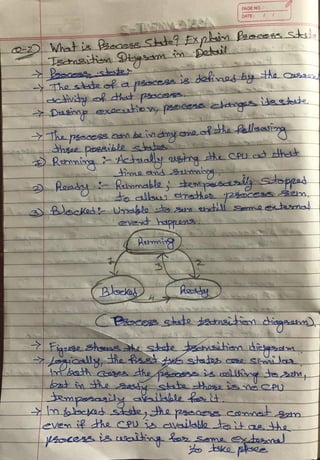 PAGE NO.
DATE: / /
Q-2) What is Process State? Explain Process State
Transition Diagram in Detail.
→ Process state:
→ The state of a process is defined by the current
activity of that process.
→ During execution, process changes its state.
→ The process can be in any one of the following
three possible states.
1) Running :- Actually using the CPU at that
time and running.
2) Ready :- Runnable; temporarily stopped
to allow another process run.
3) Blocked:- Unable to run until some external
event happens.
Running
1 3 2
Blocked 4 Ready
(Process state transition diagram)
→ Figure shows the state transition diagram.
→ Logically, the first two states are similar.
In both cases the process is willing to run,
but in the ready state there is no CPU
temporarily available for it.
→ In blocked state, the process cannot run
even if the CPU is available to it as the
process is waiting for some external
to take place